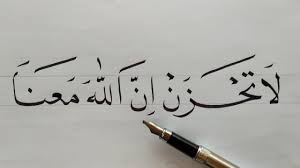 لَا تَحْزَنْ إِنَّ اللّٰهَ مَعَنَا